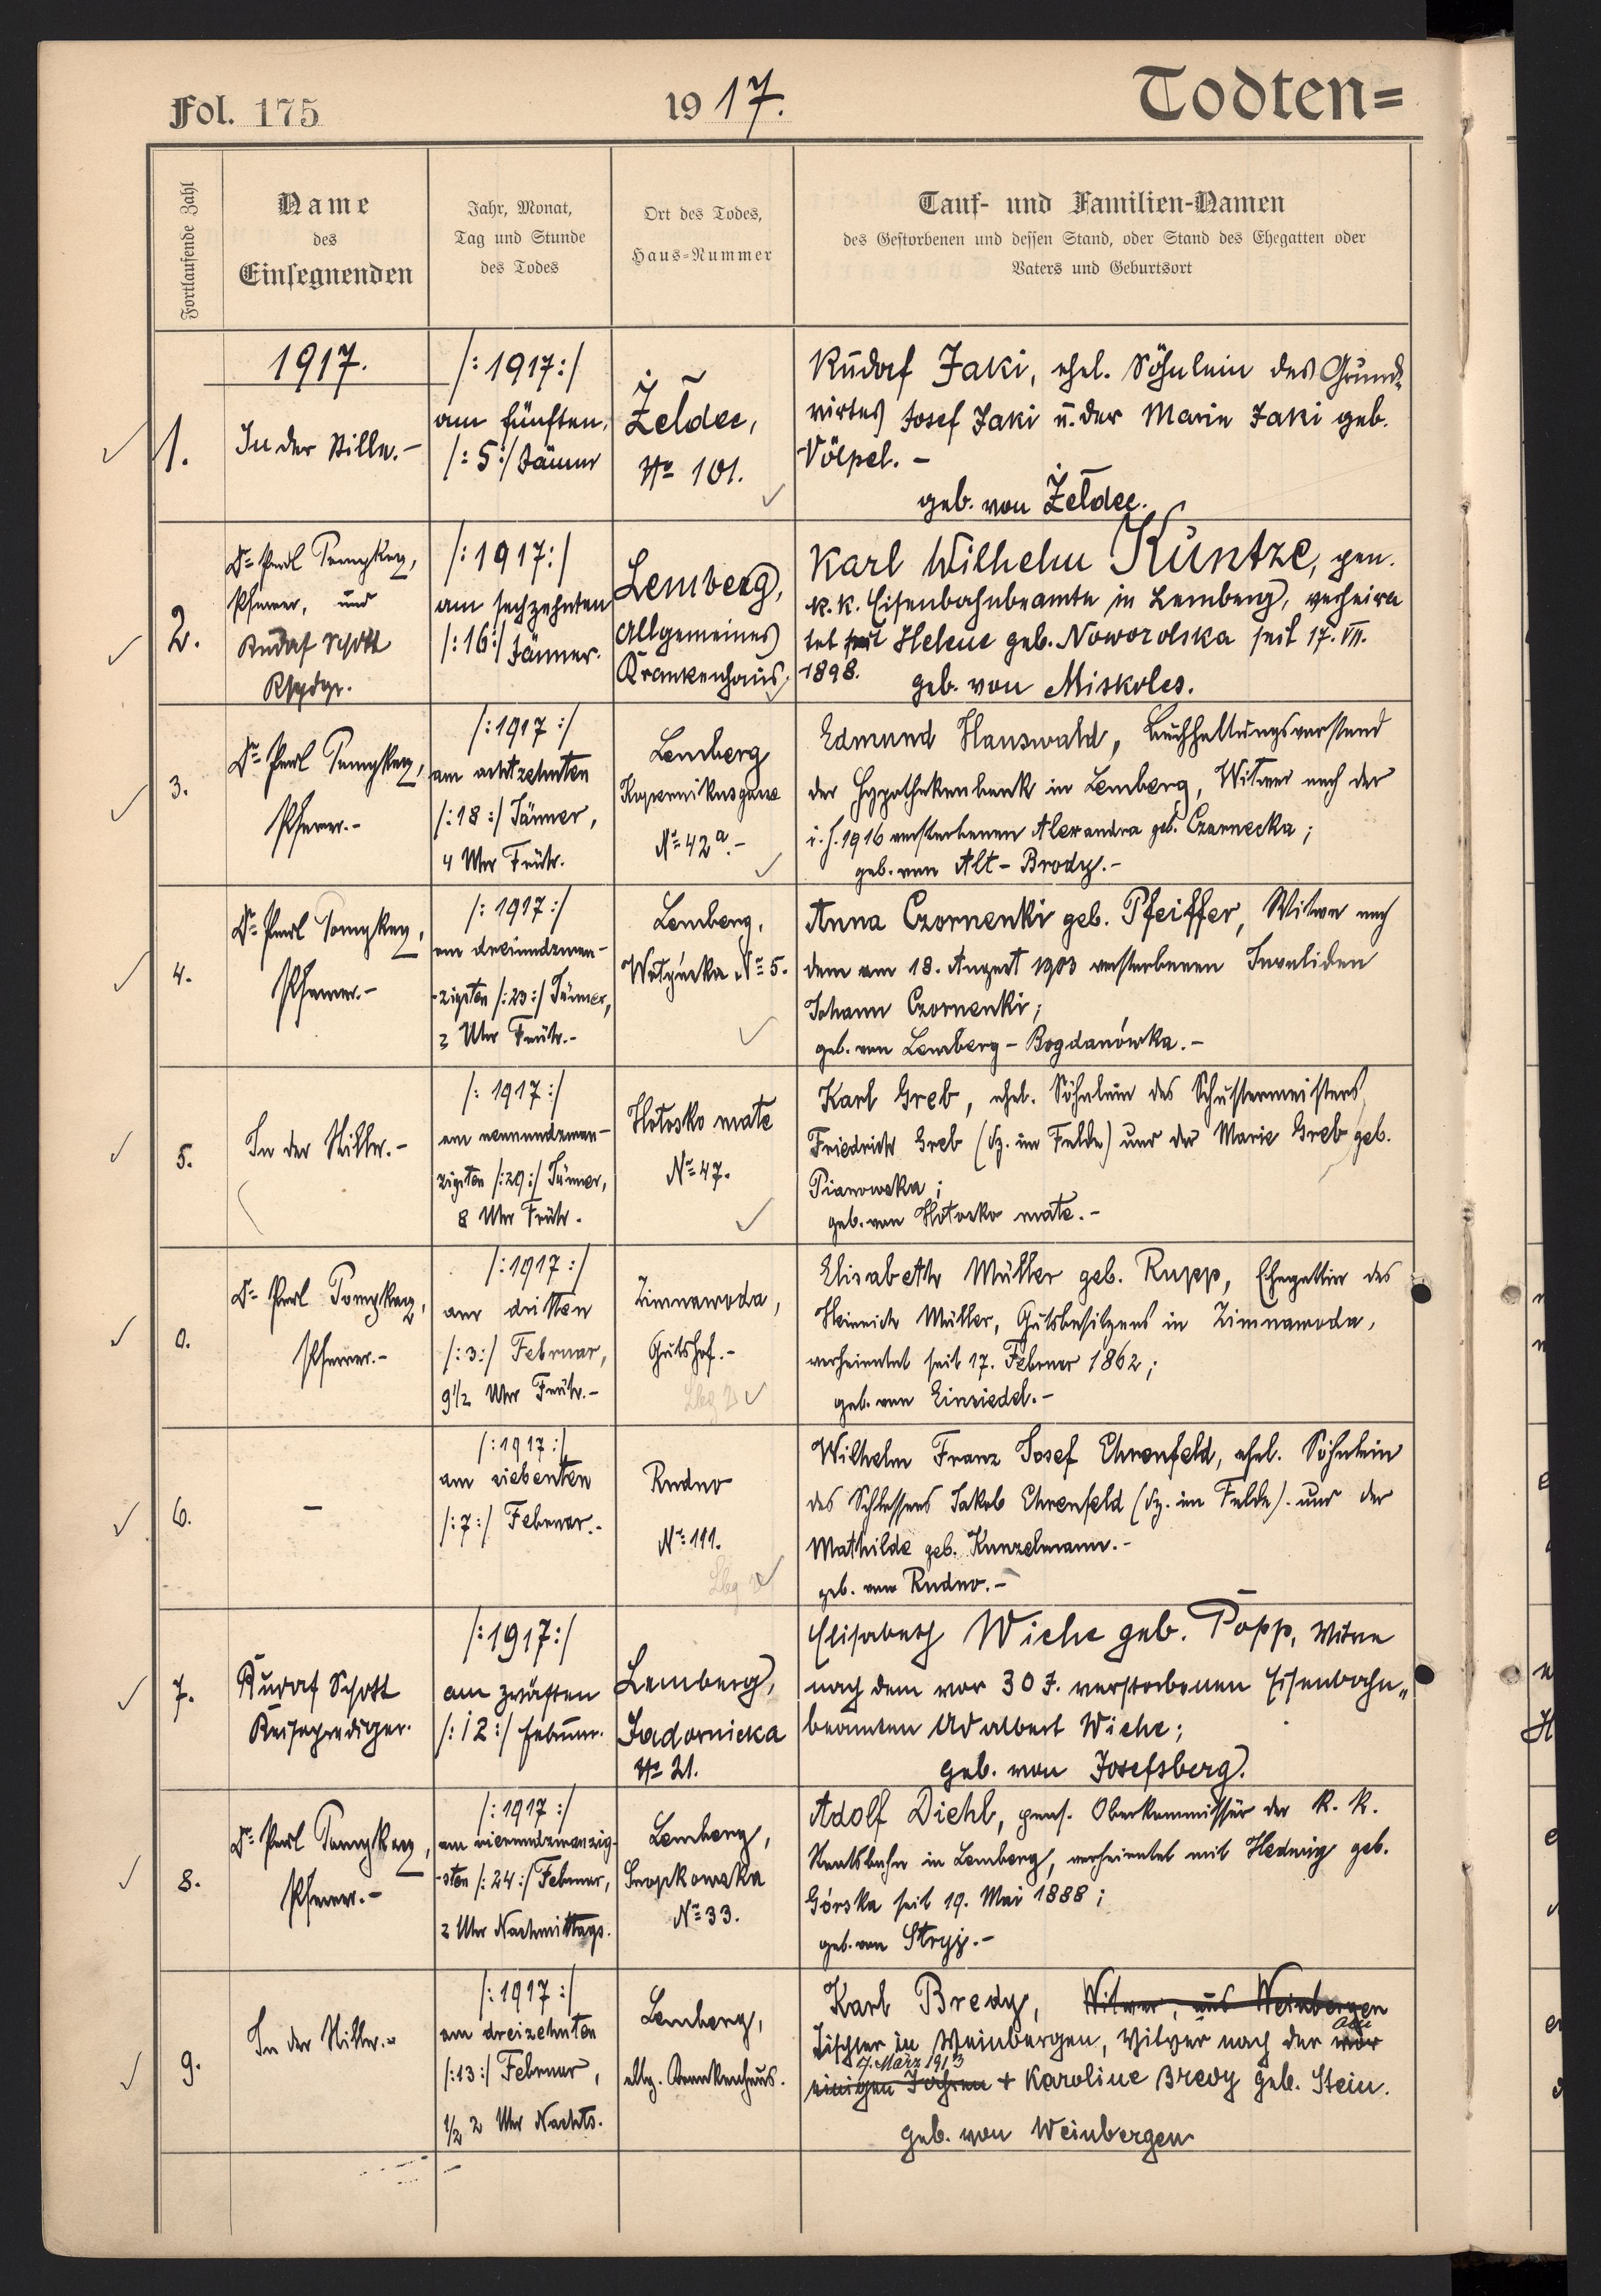 Fol. 175
1917.
Todten=
Fortlaufende Zahl
Name
des
Einsegnenden
Jahr, Monat,
Tag und Stunde
des Todes
Ort des Todes,
Haus-Nummer
Tauf- und Familien-Namen
des Gestorbenen und dessen Stand, oder Stand des Ehegatten oder
Vaters und Geburtsort
1917.
1.
In der Stille.-
/:1917:/
am fünften
/:5:/ Jänner
Żeldec,
No 101.
Rudolf Jaki, ehel. Söhnlein des Grund-
wirtes Josef Jaki u. der Marie Jaki geb.
Völpel. -
geb. von Żeldec.
2.
Dr Paul
Pfarrer, und
Rudolf Schott
/:1917:/
am sechzehnten
/:16:/ Jänner.
Lemberg,
Allgemeines
Krankenhaus.
Karl Wilhelm Kuntze, pen.
k.k. Eisenbahnbeamte in Lemberg, verheira
tet Helene geb. Noworolska seit 17. VII.
1898.
geb. von Miskolcs.
3.
Dr Paul
Pfarrer.-
/:1917:/
am achtzehnten
/:18:/ Jänner,
4 Uhr Früh.
Lemberg
Kopernikusgasse
No 42a.-
Edmund Hauswald, Buchhaltungsvorstand
der Hypothekenbank in Lemberg, Witwer nach der
i.J. 1916 verstorbenen Alexandra geb. Czarnecka;
geb. von Alt-Brody.-
4.
Dr Paul
Pfarrer.-
/:1917:/
am dreiundzwan-
-zigsten /:23:/ Jänner,
Uhr Früh.-
Lemberg,
No 5.
Anna Czornenki geb. Pfeiffer, Witwe nach
dem am 18. August 1903 verstorbenen Invaliden
Johann Czornenki;
geb. von Lemberg-Bogdanówka.-
5.
In der Stille.-
/:1917:/
am neunundzwan-
zigsten /:29:/ Jänner,
8 Uhr Früh.
Hołosko małe
No 47.
Karl Greb, ehel. Söhnlein des Schustermeisters
Friedrich Greb (dz. im Felde) und der Marie Greb geb.
Pianowska;
geb. von Hołosko małe.-
0.
Dr Paul
Pfarrer.-
/:1917:/
am dritten
/:3:/ Februar,
9 1/2 Uhr Früh.-
Zimnawoda,
Gutshof.-
Elisabeth Müller geb. Rupp, Ehegattin des
Heinrich Müller, Gutsbesitzers in Zimnawoda,
verheiratet seit 17. Februar 1862;
geb. von Einsiedel.-
6.
-
/:1917:/
am siebenten
/:7:/ Februar.-
Rudno
No 111.
Wilhelm Franz Josef Ehrenfeld, ehel. Söhnlein
des Schlossers Jakob Ehrenfeld (dz. im Felde) und der
Mathilde geb. Kunzelmann.-
geb. von Rudno.-
7.
Rudolf Schott
Reiseprediger.
/:1917:/
am zwölften
/:12:/ Februar.
Lemberg,
No 21.
Elisabeth Wiche geb. Popp, Witwe
nach dem vor 30 J. verstorbenen Eisenbahn"
beamten Adalbert Wiche;
geb. von Josefsberg.
8.
Dr Paul
Pfarrer.-
/:1917:/
am vierundzwanzig-
-sten /:24:/ Februar,
2 Uhr Nachmittags.
Lemberg,
Snopkowska
No 33.
Adolf Diehl, pens. Oberkommissär der k. k.
Staatsbahn in Lemberg, verheiratet mit Hedwig geb.
Górska seit 19. Mai 1888;
geb. von Stryj.-
9.
In der Stille.-
/:1917:/
am dreizehnten
/:13:/ Februar,
1/2 2 Uhr Nachts.
Lemberg,
allg. Krankenhaus.
Karl Bredy, Witwer, aus Weinbergen
Tischler in Weinbergen, Witwer nach der vor
7. März 1913
einigen Jahren + Karoline Bredy geb. Stein.
geb. von Weinbergen